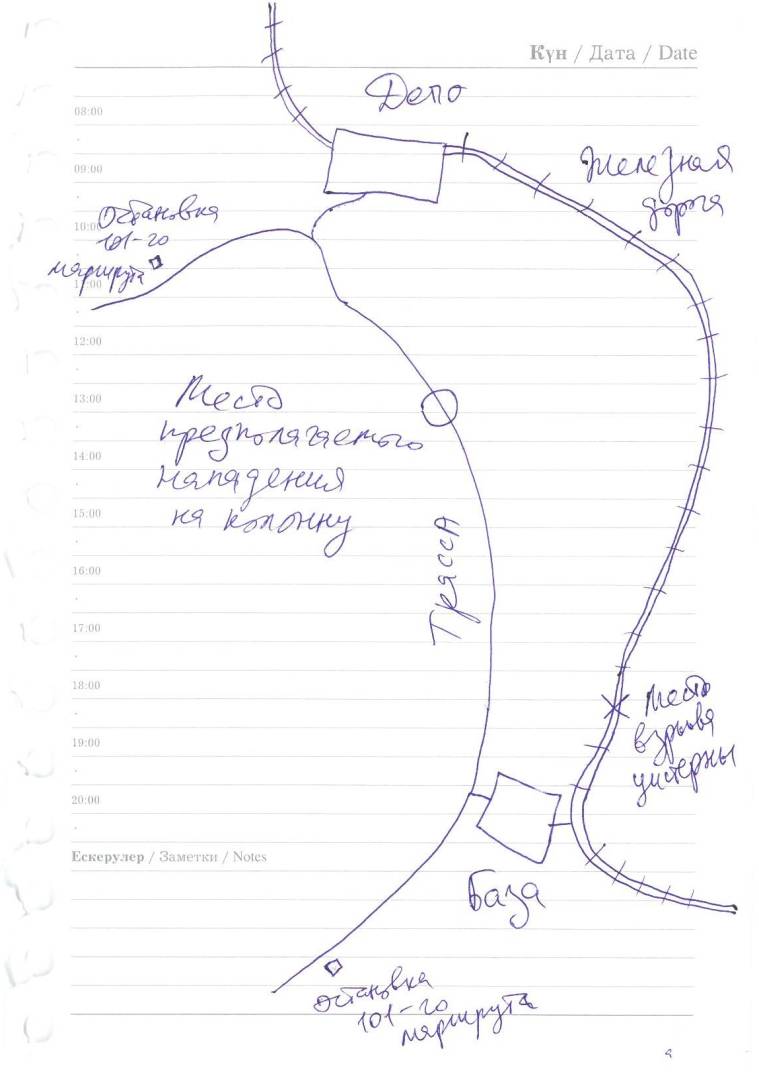 Күн / Дата / Date
Депо
08:00
Железная
дорога
09:00
Остановка
101-го
маршрута
10:00
11:00
12:00
Место
предполагаемого
нападения
на колонну
13:00
14:00
15:00
Трасса
16:00
17:00
18:00
Место
взрыва
цистерны
19:00
20:00
Ескерулер / Заметки / Notes
База
остановка
101-го
маршрута